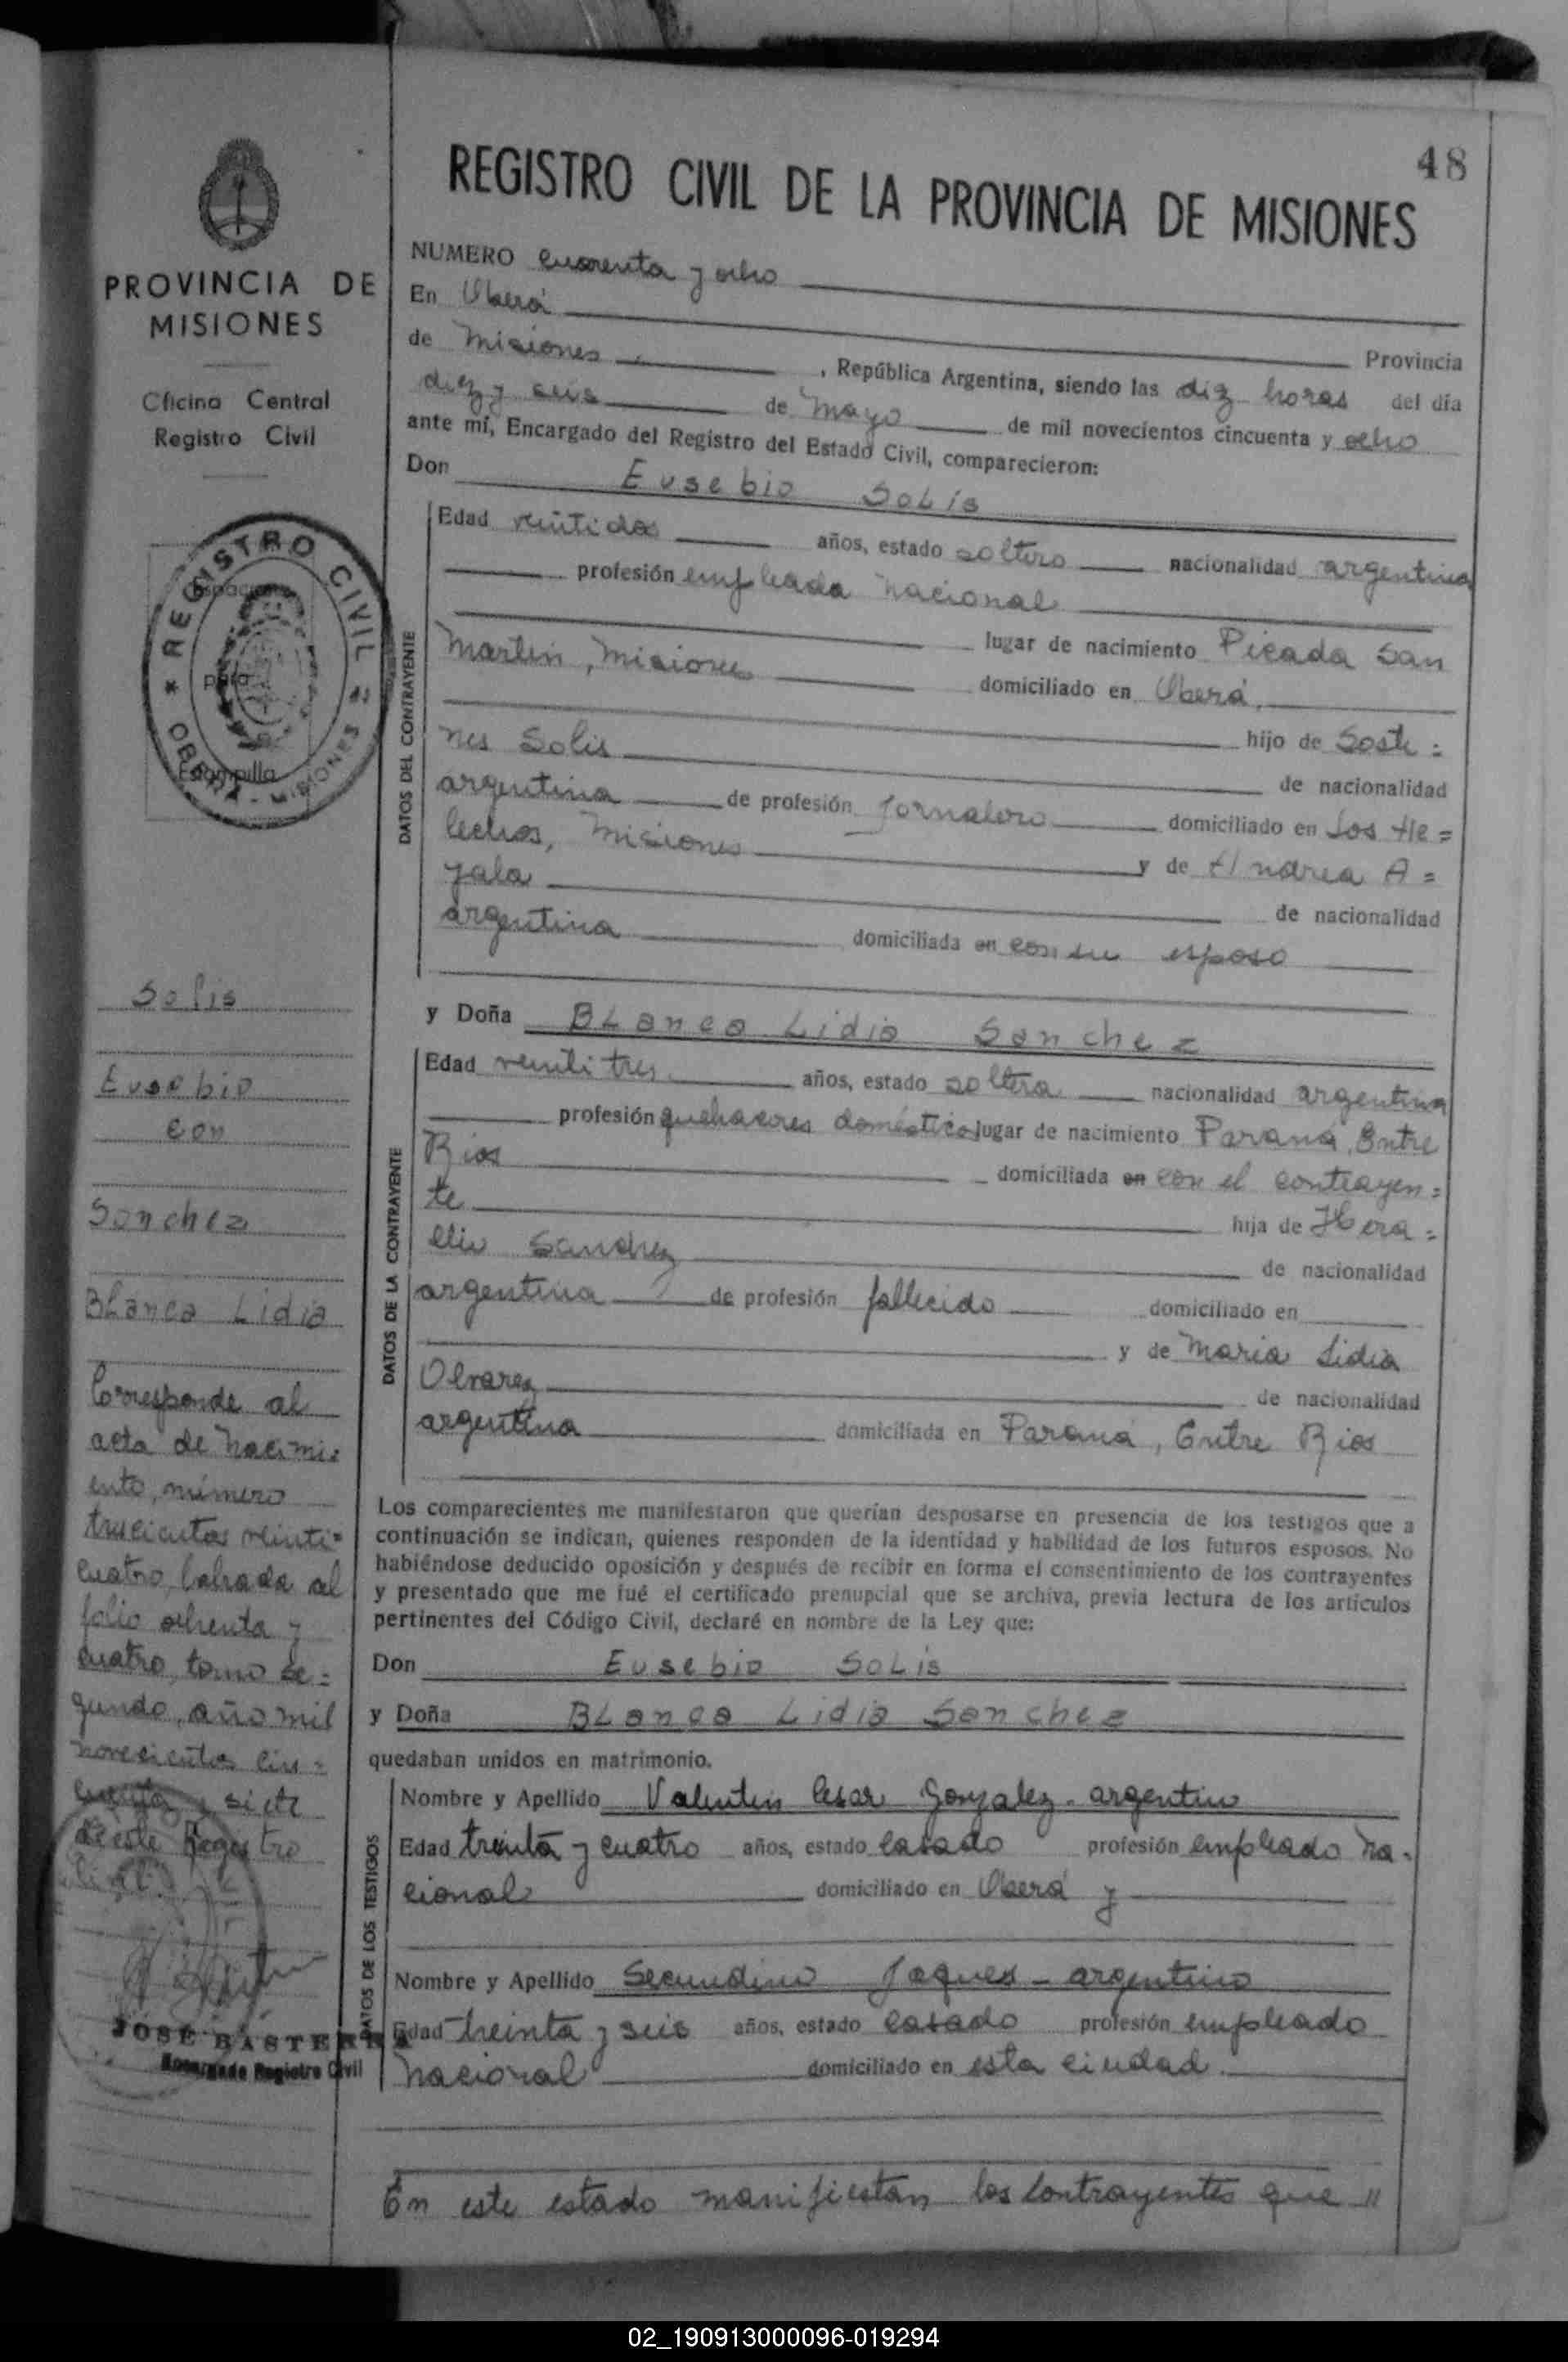 48
REGISTRO CIVIL DE LA PROVINCIA DE MISIONES
PROVINCIA DE
MISIONES
Oficina Central
Registro Civil
REGISTRO CIVIL
OBERA - MISIONES
Espacio
para
Estampilla
Solis
Eusebio
con
Sanchez
Blanca Lidia
Corresponde al
acta de nacimi=
ento, número
trescientos veinti=
cuatro, labrada al
folio ochenta y
cuatro, tomo se=
gundo, año mil
novecientos cin=
cuenta y siete
de este Registro
Civil.
JOSE BASTERRA
Encargado Registro Civil
NUMERO cuarenta y ocho
En Oberá Provincia
de Misiones, República Argentina, siendo las diez horas del día
diez y seis de Mayo de mil novecientos cincuenta y ocho
ante mí, Encargado del Registro del Estado Civil, comparecieron:
Don Eusebio Solís
DATOS DEL CONTRAYENTE
Edad veintidos años, estado soltero nacionalidad argentina
profesión empleado nacional
lugar de nacimiento Picada San
Martín, Misiones domiciliado en Oberá,
hijo de Soste=
nes Solis de nacionalidad
argentina de profesión jornalero domiciliado en Los He=
lechos, Misiones y de Andrea A=
yala de nacionalidad
argentina domiciliada en con su esposo
y Doña Blanca Lidia Sanchez
DATOS DE LA CONTRAYENTE
Edad veintitres años, estado soltera nacionalidad argentina
profesión quehaceres domésticos lugar de nacimiento Paraná, Entre
Rios domiciliada en con el contrayen=
te hija de Hera=
clio Sanchez de nacionalidad
argentina de profesión fallecido domiciliado en
y de Maria Lidia
Olvarez de nacionalidad
argentina domiciliada en Paraná, Entre Rios
Los comparecientes me manifestaron que querían desposarse en presencia de los testigos que a
continuación se indican, quienes responden de la identidad y habilidad de los futuros esposos. No
habiéndose deducido oposición y después de recibir en forma el consentimiento de los contrayentes
y presentado que me fué el certificado prenupcial que se archiva, previa lectura de los artículos
pertinentes del Código Civil, declaré en nombre de la Ley que:
Don Eusebio Solis
y Doña Blanca Lidia Sanchez
quedaban unidos en matrimonio.
DATOS DE LOS TESTIGOS
Nombre y Apellido Valentin Cesar Gonzalez - argentino
Edad treinta y cuatro años, estado casado profesión empleado na-
cional domiciliado en Oberá y
Nombre y Apellido Secundino Jaques - argentino
Edad treinta y seis años, estado casado profesión empleado
nacional domiciliado en esta ciudad.
En este estado manifiestan los contrayentes que //
02_190913000096-019294